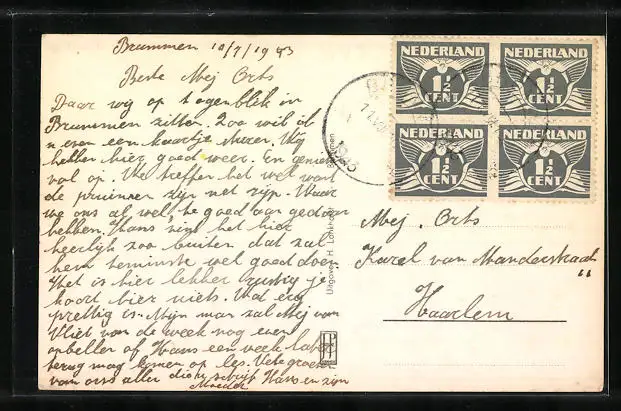 Brummen 10/7/1943
Beste Mej Orts
Daar wij op 't ogenblik in
Brummen zitten zoo wil ik
u even een kaartje sturen. Wij
hebben hier goed weer. En genieten
vol op. We treffen het wel want
de pruimen zijn net rijp. Waar
we ons al wel te goed aan gedaan
hebben. Hans vint het hier
heerlijk zoo buiten dat zal
hem teminste wel goed doen
Het is hier lekker rustig je
hoort hier niets. Wat erg
prettig is. Mijn man zal Mej van
Vliet van de week nog even
opbellen of Hans een week later
terug mag komen op les. Vele groeten
van ons allen Hans en zijn
Moeder
NEDERLAND
1½
CENT
NEDERLAND
1½
CENT
NEDERLAND
1½
CENT
NEDERLAND
1½
CENT
1943
Uitgave H. Lankhorst
Mej. Orts
Karel van Manderstraat
Haarlem